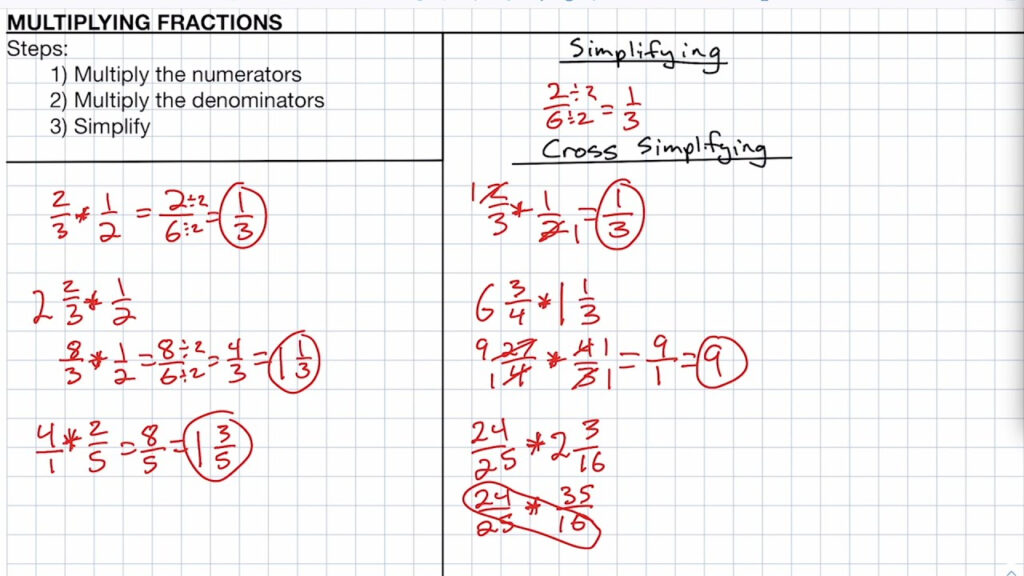 MULTIPLYING FRACTIONS
Steps:
1) Multiply the numerators
2) Multiply the denominators
3) Simplify
2/3 * 1/2 = 2÷2/6÷2 = 1/3
2 2/3 * 1/2
8/3 * 1/2 = 8÷2/6÷2 = 4/3 = 1 1/3
4/1 * 2/5 = 8/5 = 1 3/5
Simplifying
2÷2/6÷2 = 1/3
Cross Simplifying
1 2/3 * 1/2 1 = 1/3
6 3/4 * 1 1/3
9 27/1 4 * 4 1/3 1 = 9/1 = 9
24/25 * 2 3/16
24/25 * 35/16